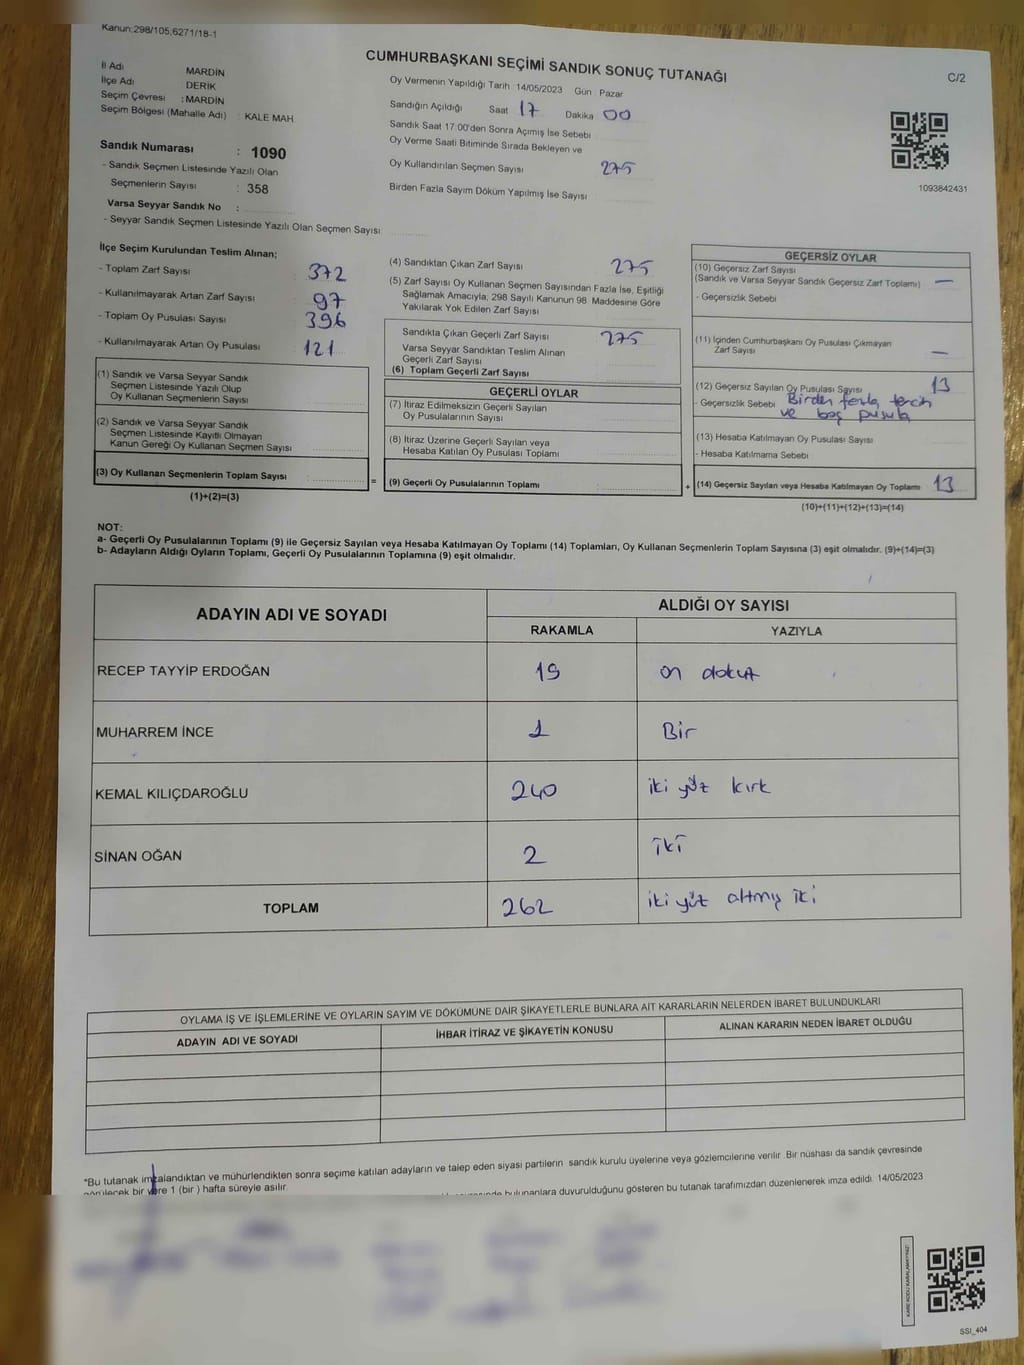 Kanun;298/105;6271/18-1
CUMHURBAŞKANI SEÇİMİ SANDIK SONUÇ TUTANAĞI
C/2
İl Adı MARDİN
İlçe Adı DERİK
Seçim Çevresi : MARDİN
Seçim Bölgesi (Mahalle Adı) : KALE MAH.
Oy Vermenin Yapıldığı Tarih : 14/05/2023 Gün : Pazar
Sandığın Açıldığı Saat 17 Dakika 00
Sandık Saat 17:00'den Sonra Açımış İse Sebebi
Oy Verme Saati Bitiminde Sırada Bekleyen ve
Oy Kullandırılan Seçmen Sayısı 275
Birden Fazla Sayım Döküm Yapılmış İse Sayısı
1093842431
Sandık Numarası : 1090
- Sandık Seçmen Listesinde Yazılı Olan
Seçmenlerin Sayısı : 358
Varsa Seyyar Sandık No :
- Seyyar Sandık Seçmen Listesinde Yazılı Olan Seçmen Sayısı
İlçe Seçim Kurulundan Teslim Alınan;
- Toplam Zarf Sayısı 372
- Kullanılmayarak Artan Zarf Sayısı 97
- Toplam Oy Pusulası Sayısı 396
- Kullanılmayarak Artan Oy Pusulası 121
(1) Sandık ve Varsa Seyyar Sandık
Seçmen Listesinde Yazılı Olup
Oy Kullanan Seçmenlerin Sayısı
(2) Sandık ve Varsa Seyyar Sandık
Seçmen Listesinde Kayıtlı Olmayan
Kanun Gereği Oy Kullanan Seçmen Sayısı
(3) Oy Kullanan Seçmenlerin Toplam Sayısı : =
(1)+(2)=(3)
(4) Sandıktan Çıkan Zarf Sayısı 275
(5) Zarf Sayısı Oy Kullanan Seçmen Sayısından Fazla İse, Eşitliği
Sağlamak Amacıyla, 298 Sayılı Kanunun 98. Maddesine Göre
Yakılarak Yok Edilen Zarf Sayısı
Sandıkta Çıkan Geçerli Zarf Sayısı 275
Varsa Seyyar Sandıktan Teslim Alınan
Geçerli Zarf Sayısı
(6) Toplam Geçerli Zarf Sayısı
GEÇERLİ OYLAR
(7) İtiraz Edilmeksizin Geçerli Sayılan
Oy Pusulalarının Sayısı
(8) İtiraz Üzerine Geçerli Sayılan veya
Hesaba Katılan Oy Pusulası Toplamı
(9) Geçerli Oy Pusulalarının Toplamı : +
GEÇERSİZ OYLAR
(10) Geçersiz Zarf Sayısı
(Sandık ve Varsa Seyyar Sandık Geçersiz Zarf Toplamı) —
- Geçersizlik Sebebi
(11) İçinden Cumhurbaşkanı Oy Pusulası Çıkmayan
Zarf Sayısı —
(12) Geçersiz Sayılan Oy Pusulası Sayısı 13
- Geçersizlik Sebebi Birden fazla tercih
ve boş pusula
(13) Hesaba Katılmayan Oy Pusulası Sayısı
- Hesaba Katılmama Sebebi
(14) Geçersiz Sayılan veya Hesaba Katılmayan Oy Toplamı 13
(10)+(11)+(12)+(13)=(14)
NOT:
a- Geçerli Oy Pusulalarının Toplamı (9) ile Geçersiz Sayılan veya Hesaba Katılmayan Oy Toplamı (14) Toplamları, Oy Kullanan Seçmenlerin Toplam Sayısına (3) eşit olmalıdır. (9)+(14)=(3)
b- Adayların Aldığı Oyların Toplamı, Geçerli Oy Pusulalarının Toplamına (9) eşit olmalıdır.
ADAYIN ADI VE SOYADI ALDIĞI OY SAYISI
RAKAMLA YAZIYLA
RECEP TAYYİP ERDOĞAN 19 on dokuz
MUHARREM İNCE 1 Bir
KEMAL KILIÇDAROĞLU 240 iki yüz kırk
SİNAN OĞAN 2 iki
TOPLAM 262 iki yüz altmış iki
OYLAMA İŞ VE İŞLEMLERİNE VE OYLARIN SAYIM VE DÖKÜMÜNE DAİR ŞİKAYETLERLE BUNLARA AİT KARARLARIN NELERDEN İBARET BULUNDUKLARI
ADAYIN ADI VE SOYADI İHBAR İTİRAZ VE ŞİKAYETİN KONUSU ALINAN KARARIN NEDEN İBARET OLDUĞU
*Bu tutanak imzalandıktan ve mühürlendikten sonra seçime katılan adayların ve talep eden siyasi partilerin sandık kurulu üyelerine veya gözlemcilerine verilir. Bir nüshası da sandık çevresinde
görülecek bir yere 1 (bir ) hafta süreyle asılır. bulunanlara duyurulduğunu gösteren bu tutanak tarafımızdan düzenlenerek imza edildi. 14/05/2023
KAREKODU KARALAMAYINIZ!
SSI_404